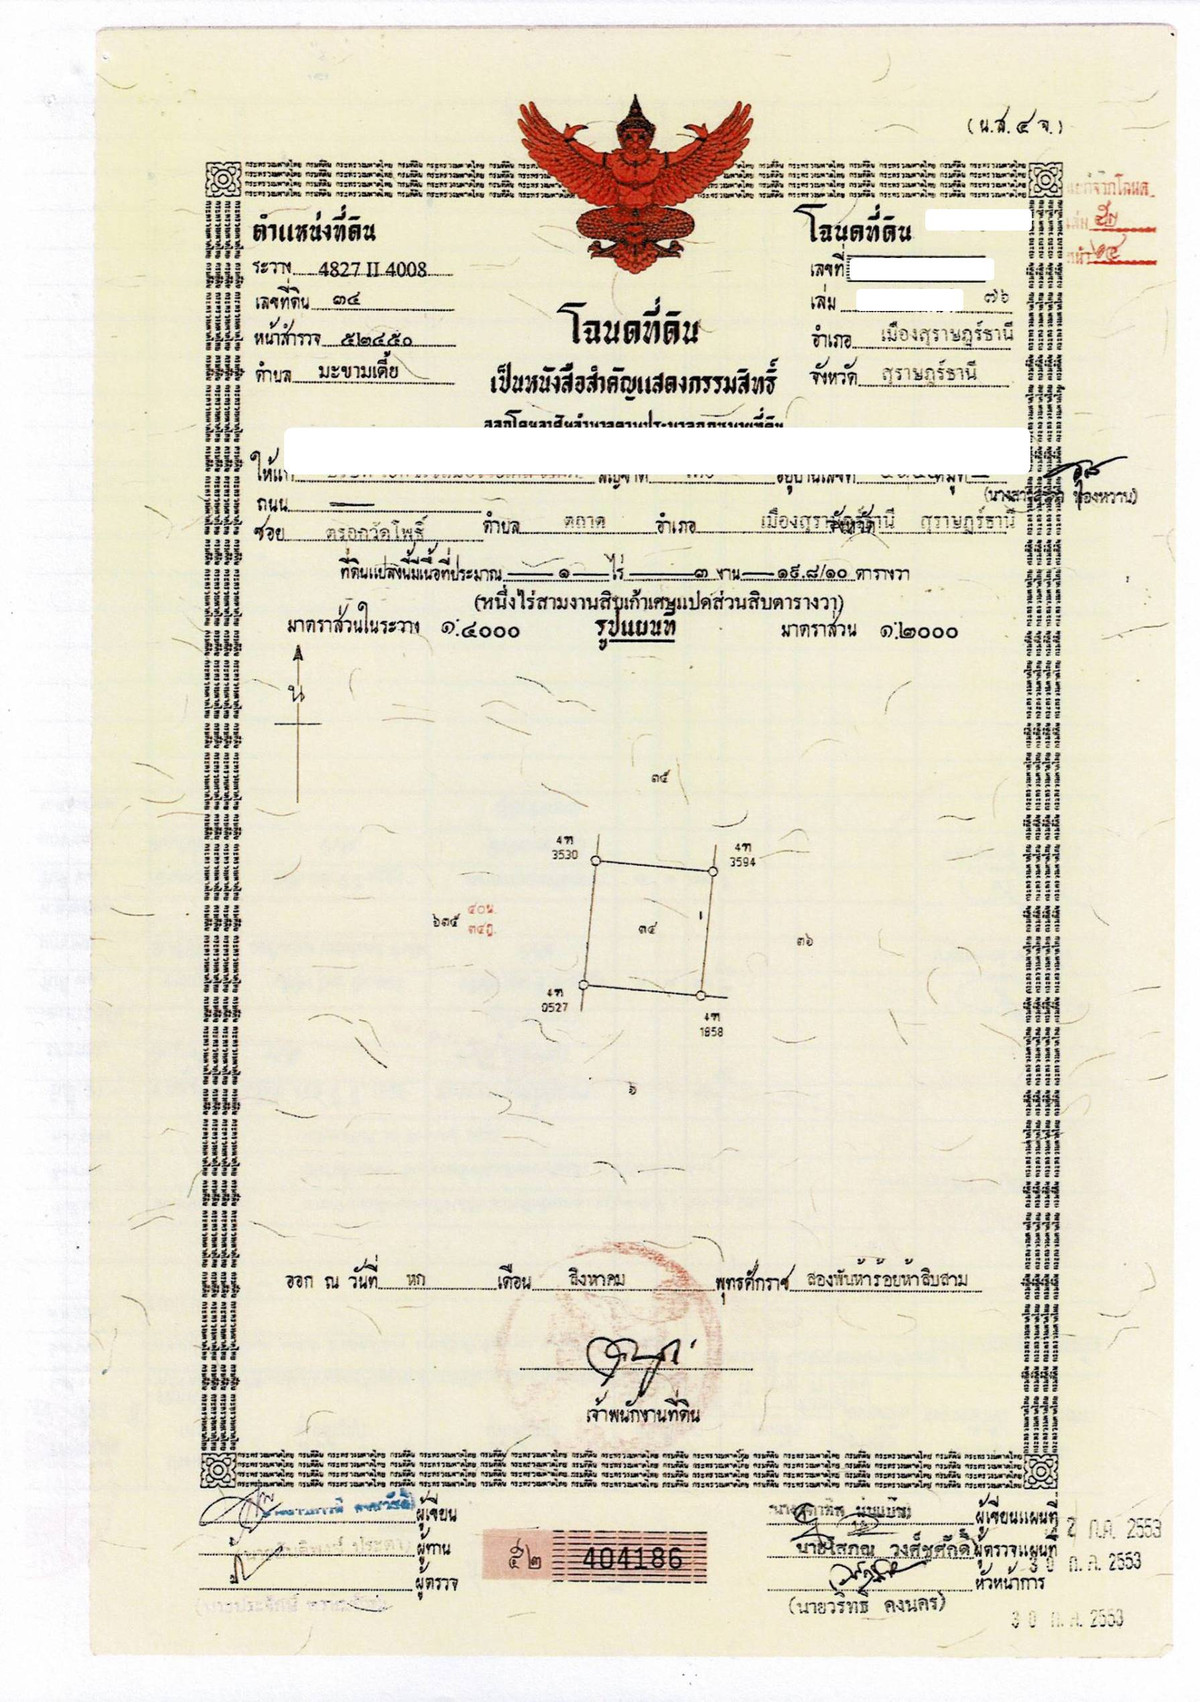 (น.ส. ๔ จ.)
ตำแหน่งที่ดิน
โฉนดที่ดิน
ระวาง 4827 II 4008
เลขที่
เลขที่ดิน ๓๔
เล่ม ๗๖
หน้าสำรวจ ๕๒๔๕๐
อำเภอ เมืองสุราษฎร์ธานี
ตำบล มะขามเตี้ย
จังหวัด สุราษฎร์ธานี
โฉนดที่ดิน
เป็นหนังสือสำคัญแสดงกรรมสิทธิ์
ออกโดยอาศัยอำนาจตามประมวลกฎหมายที่ดิน
ถนน
ซอย ตรอกวัดโพธิ์ ตำบล ตลาด อำเภอ เมืองสุราษฎร์ธานี จังหวัด สุราษฎร์ธานี
ที่ดินแปลงนี้มีเนื้อที่ประมาณ ๑ ไร่ ๓ งาน ๑๙.๘/๑๐ ตารางวา
(หนึ่งไร่สามงานสิบเก้าเศษแปดส่วนสิบตารางวา)
มาตราส่วนในระวาง ๑:๔๐๐๐ รูปแผนที่ มาตราส่วน ๑:๒๐๐๐
น
๓๕
4ฑ
3530
4ฑ
3594
๖๓๕
๔๐น.
๓๔ฎ.
๓๔
๓๖
4ฑ
0527
4ฑ
1858
๖
ออก ณ วันที่ หก เดือน สิงหาคม พุทธศักราช สองพันห้าร้อยห้าสิบสาม
เจ้าพนักงานที่ดิน
ผู้เขียน
ผู้ทาน
ผู้ตรวจ
๕๒ 404186
ผู้เขียนแผนที่ 2 ก.ค. 2553
นายโสภณ วงศ์ชูศักดิ์ ผู้ตรวจแผนที่ 30 ก.ค. 2553
หัวหน้าการ
(นายวริทธิ์ คงนคร)
30 ก.ค. 2553